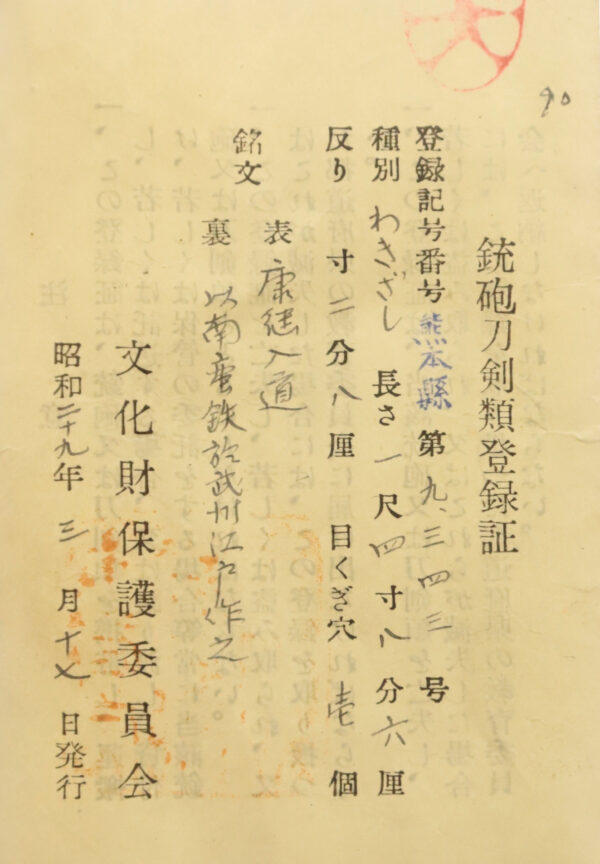 90
銃砲刀剣類登録証
登録記号番号熊本縣 第九、三四三号
種別 わきざし 長さ 一尺四寸八分六厘
反り 寸二分八厘 目くぎ穴 壱個
銘文 表 康継入道
裏 以南蛮鉄於武州江戸作之
文化財保護委員会
昭和二十九年 三月十七日発行